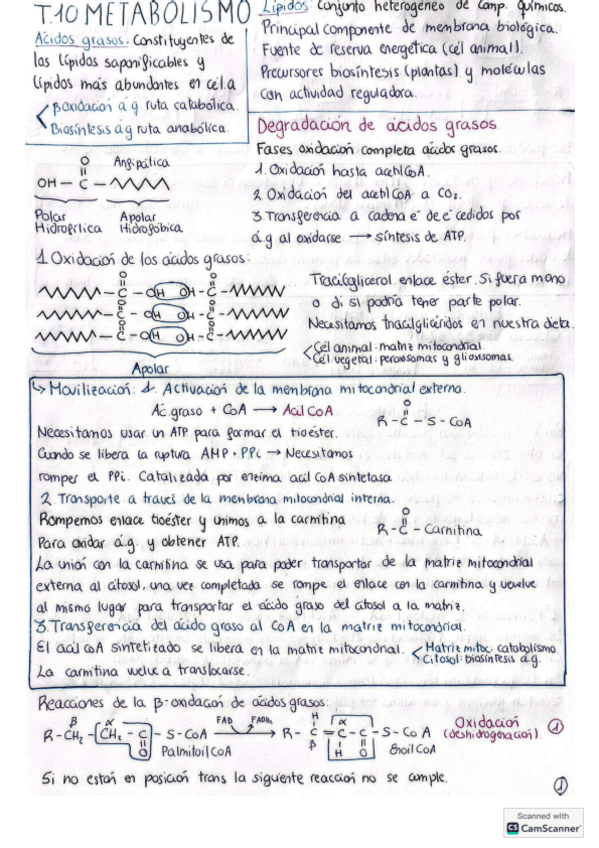 T.10 METABOLISMO
Ácidos grasos: Constituyentes de
los lípidos saponificables y
lípidos más abundantes en cél.a
βoxidación á.g ruta catabólica.
Biosíntesis á.g ruta anabólica.
Lípidos: Conjunto heterogéneo de comp. químicos.
Principal componente de membrana biológica.
Fuente de reserva energética (cél animal).
Precursores biosíntesis (plantas) y moléculas
con actividad reguladora.
Degradación de ácidos grasos.
Fases oxidación completa ácidos grasos.
1. Oxidación hasta acetilCoA.
2. Oxidación del acetilCoA a CO2.
3. Transferencia a cadena e- de e- cedidos por
á.g al oxidarse → Síntesis de ATP.
Anfipática
O
OH - C -
Polar Apolar
Hidrofílica Hidrofóbica
1. Oxidación de los ácidos grasos:
O O
C - OH OH - C
C - OH OH - C
C - OH OH - C
Apolar
Triacilglicerol enlace éster. Si fuera mono
o di si podría tener parte polar.
Necesitamos triacilglicéridos en nuestra dieta.
Cél animal: matriz mitocondrial
Cél vegetal: peroxisomas y glioxisomas.
↳ Movilización: 1. Activación de la membrana mitocondrial externa.
Ác. graso + CoA → Acil CoA
O
R - C - S - CoA
Necesitamos usar un ATP para formar el tioéster.
Cuando se libera la ruptura AMP + PPi → Necesitamos
romper el PPi. Catalizada por enzima acil CoA sintetasa
2. Transporte a través de la membrana mitocondrial interna.
Rompemos enlace tioéster y unimos a la carnitina
O
R - C - Carnitina
Para oxidar á.g. y obtener ATP.
La unión con la carnitina se usa para poder transportar de la matriz mitocondrial
externa al citosol, una vez completada se rompe el enlace con la carnitina y vuelve
al mismo lugar para transportar el ácido graso del citosol a la matriz.
3. Transferencia del ácido graso al CoA en la matriz mitocondrial.
El acil CoA sintetizado se libera en la matriz mitocondrial.
Matriz mitoc: catabolismo.
Citosol: biosíntesis á.g.
La carnitina vuelve a translocarse.
Reacciones de la β-oxidación de ácidos grasos:
β α FAD FADH2 H α
R - CH2 - CH2 - C - S - CoA R - C = C - C - S - Co A
O β H O
Palmitoil CoA Enoil CoA
Oxidación
(deshidrogenación). 1
Si no están en posición trans la siguiente reacción no se cumple.
1
Scanned with
CS CamScanner